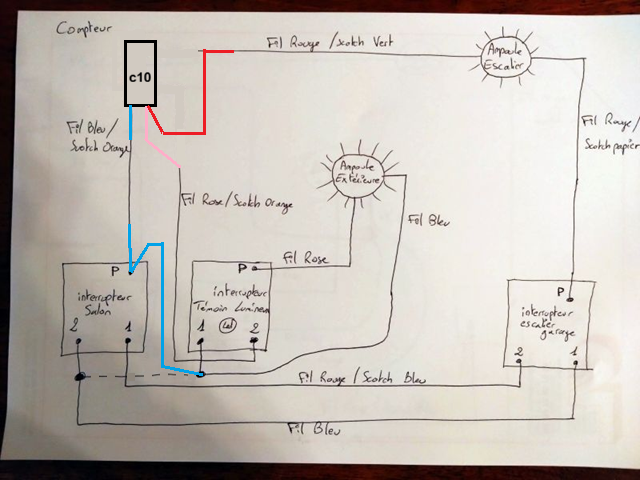 Compteur
c10
Fil Rouge / Scotch Vert
Ampoule
Escalier
Fil Bleu /
Scotch Orange
Fil Rouge /
Scotch papier
Ampoule
Extérieure
Fil Rose / Scotch Orange
Fil Bleu
Fil Rose
P
interrupteur
Salon
2 1
P
interrupteur
Témoin Lumineux
1 2
P
interrupteur
escalier
garage
2 1
Fil Rouge / Scotch Bleu
Fil Bleu